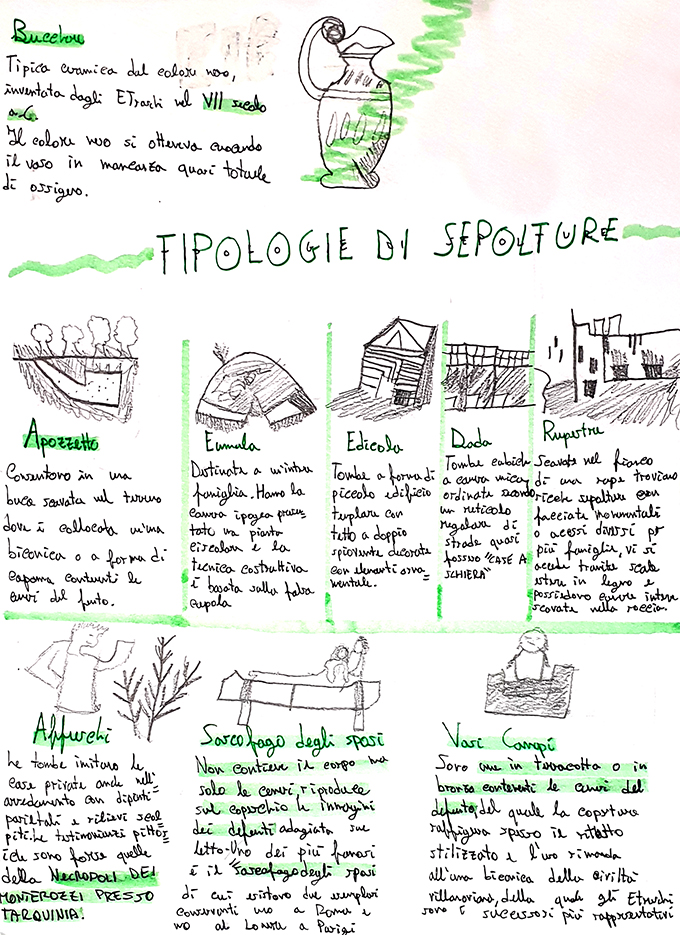 Bucchero
Tipica ceramica dal colore nero,
inventata dagli Etruschi nel VII secolo
a.C.
Il colore nero si otteneva cuocendo
il vaso in mancanza quasi totale
di ossigeno.
TIPOLOGIE DI SEPOLTURE
Apozzetto
Consentono in una
buca scavata nel terreno
dove è collocata un'urna
biconica o a forma di
capanna contenenti le
ceneri del defunto.
Destinate a un'intera
famiglia. Hanno la
camera ipogea presen=
tate una pianta
circolare e la
tecnica costruttiva
è basata sulla falsa
cupola
Edicola
Tombe a forma di
piccolo edificio
templare con
tetto a doppio
spiovente decorate
con elementi orna=
mentale.
Dada
Tombe cubiche
a camera micro
ordinate secondo
un reticolo
regolare di
strade quasi
fossero "CASE A
SCHIERA"
Rupestre
Scavate nel fianco
di una rupe troviamo
ricche sepolture con
facciate monumentali
o accessi diversi per
più famiglie, vi si
accede tramite scale
esterne in legno e
possiedono camere interne
scavate nella roccia.
Affreschi
Le tombe imitano le
case private anche nell'
arredamento con dipinti
parietali e rilievi scol
piti. Le testimonianze pitto=
iche sono forse quelle
della NECROPOLI DEI
MONTEROZZI PRESSO
TARQUINIA.
Sarcofago degli sposi
Non contiene il corpo ma
solo le ceneri, riproduce
sul coperchio le immagini
dei defunti adagiata sue
letto. Uno dei più famosi
è il "sarcofago degli sposi
di cui esistono due esemplari
conservati uno a Roma e
uno al Louvre a Parigi
Vasi Canopi
Sono urne in terracotta o in
bronzo contenenti le ceneri del
defunto, del quale la copertura
raffigura spesso il ritratto
stilizzato e l'uso rimanda
all'urna biconica della civiltà
villanoviana, della quale gli Etruschi
sono i successori più rappresentativi